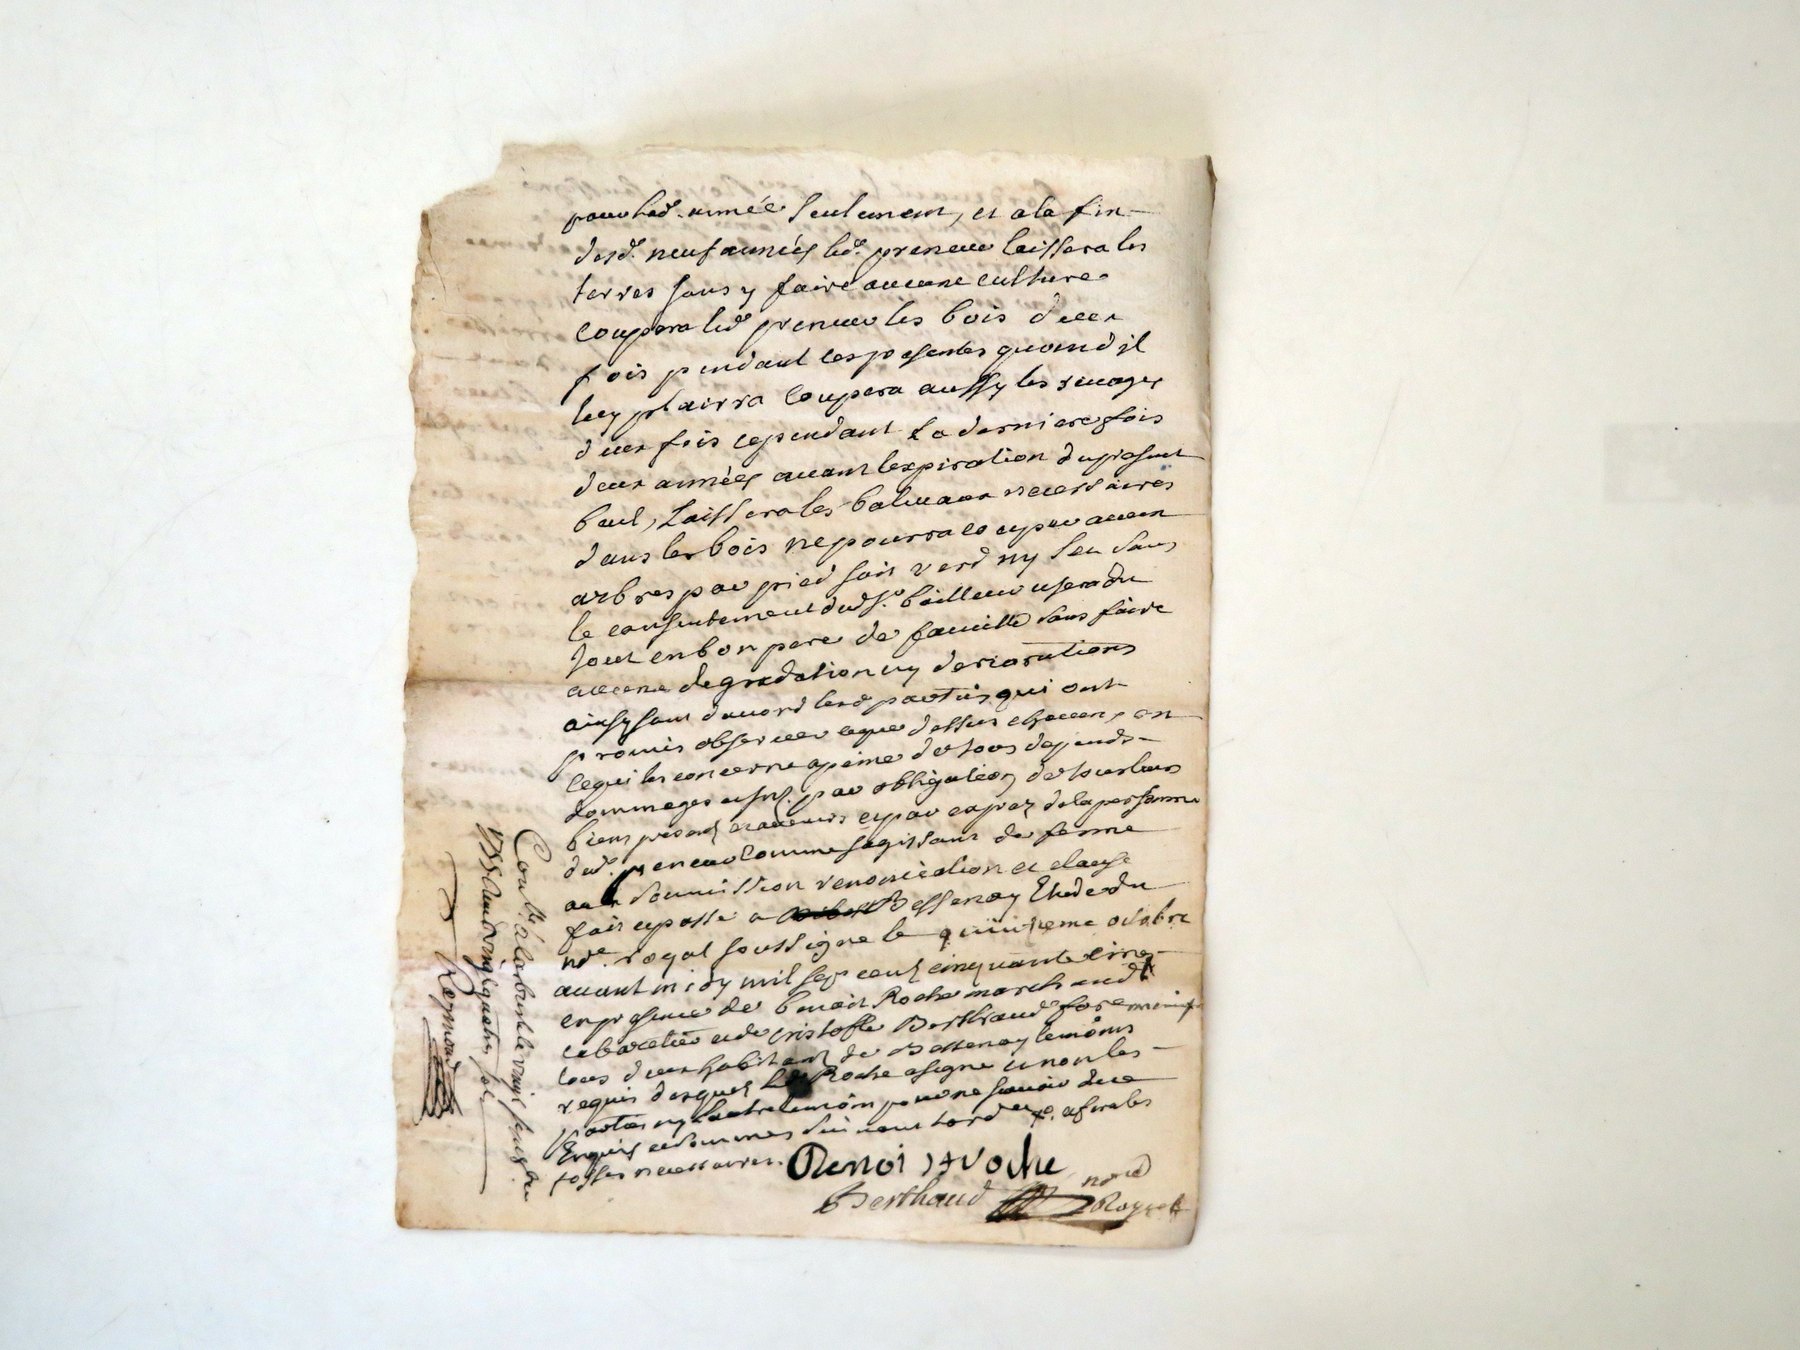 pour lad. année seulement, et a la fin
desd. neuf années led. preneur laissera les
terres sans y faire aucune culture
coupera led. preneur les bois deux
fois pendant les presentes quand il
luy plairra coupera aussy les
deux fois cependant La derniere fois
deux années avant lexpiration du present
bail, Laissera les baliveaux necessaires
dans les bois ne pourra couper aucun
arbres par pied soit verd ny sec sans
le consentement dud. sr. bailleur usera du
tout en bon pere de famille sans faire
aucune degradation ny deriorations
ainsy sont d'accord lesd. parties qui ont
promis observer ce que dessus chacun en
ce qui les concerne a peine de tous depends
dommages par obligation de tous leurs
biens presents et avenirs et par exprez de la personne
dud. preneur comme sagissant de ferme
soumission renonciation et clause
fait et passé a Bessenay Etude du
nore. royal soussigné le quinzieme octobre
avant midy mil sept cent cinquante cinq
en presence de benoit Roche marchand
cabaretier et de cristofle Berthaud
tous deux habitants de Bessenay temoins
requis desquels led. Roche a signé et non les
parties ny lautre temoin pour ne scavoir de ce
Enquis et sommés suivant lord.
necessaires.
Benoit Roche
Berthaud
nore
Con.lé à larbresle le vingt
Reymond